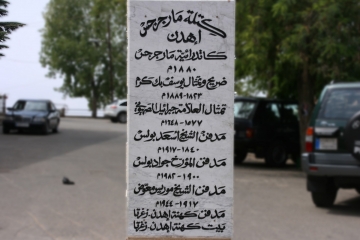 كتلة مار جرجس
اهدن
كاتدرائية مار جرجس
١٨٨٠م
ضريح وتمثال يوسف بك كرم
١٨٢٣-١٨٨٩م
تمثال العلامة جبرائيل الصهيوني
١٥٧٧-١٦٤٨م
مدفن الشيخ اسعد بولس
١٨٤٠-١٩١٧م
مدفن المؤرخ جواد بولس
١٩٠٠-١٩٨٢م
مدفن الشيخ موريس معوض
١٩١٧-١٩٤٤م
مدفن كهنة اهدن. زغرتا
بيت كهنة اهدن. زغرتا